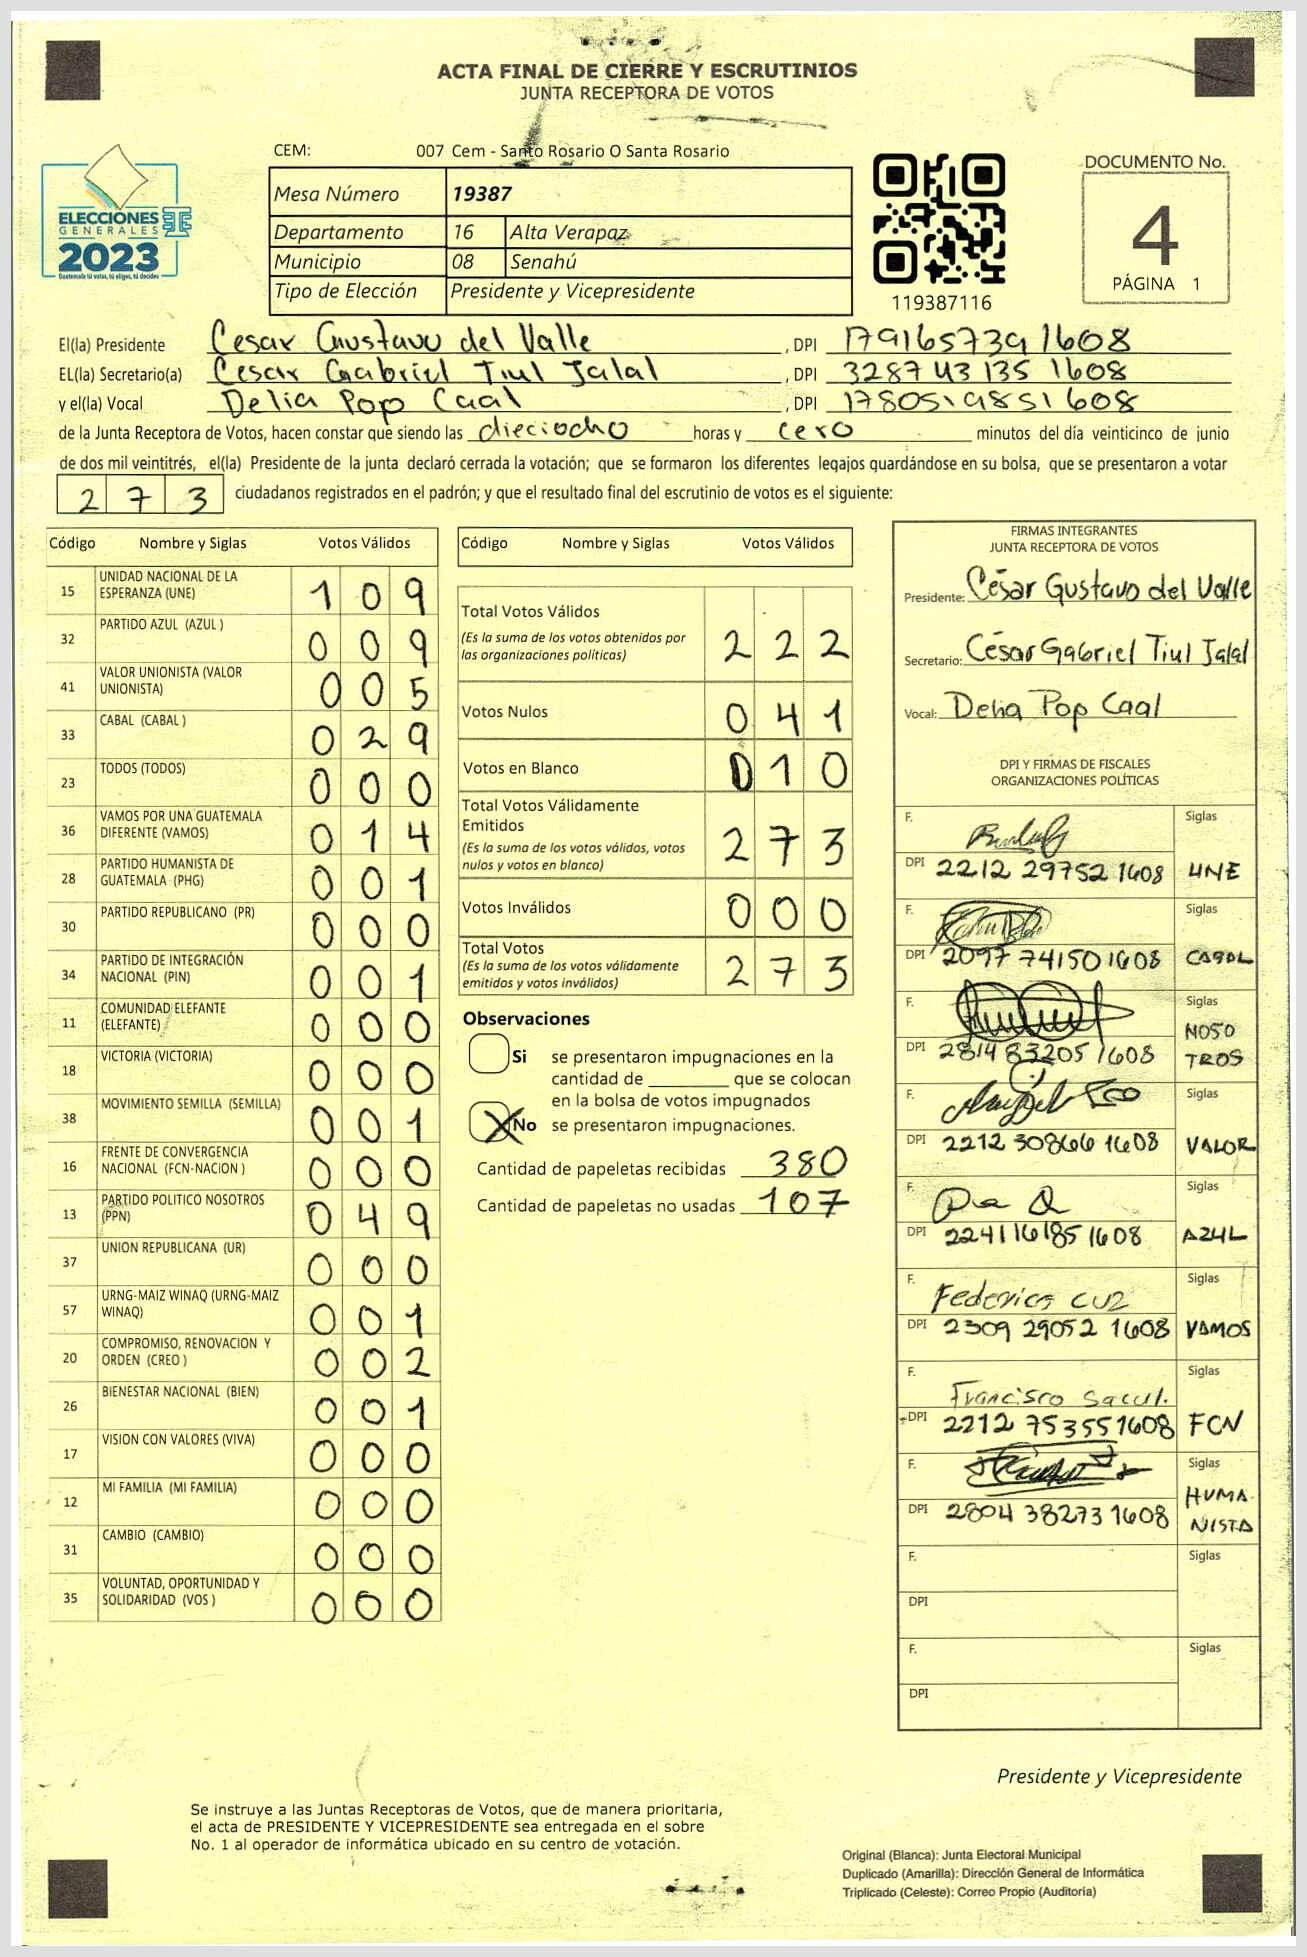 ACTA FINAL DE CIERRE Y ESCRUTINIOS
JUNTA RECEPTORA DE VOTOS
CEM: 007 Cem - Santo Rosario O Santa Rosario
Mesa Número 19387
Departamento 16 Alta Verapaz
Municipio 08 Senahú
Tipo de Elección Presidente y Vicepresidente
ELECCIONES
GENERALES
2023
Guatemala tú votas, tú eliges, tú decides
119387116
DOCUMENTO No.
4
PÁGINA 1
El(la) Presidente Cesar Gustavo del Valle , DPI 1791657391608
EL(la) Secretario(a) Cesar Gabriel Tiul Jalal , DPI 3287 43135 1608
y el(la) Vocal Delia Pop Caal , DPI 1780519851608
de la Junta Receptora de Votos, hacen constar que siendo las dieciocho horas y cero minutos del día veinticinco de junio
de dos mil veintitrés, el(la) Presidente de la junta declaró cerrada la votación; que se formaron los diferentes legajos guardándose en su bolsa, que se presentaron a votar
2 7 3 ciudadanos registrados en el padrón; y que el resultado final del escrutinio de votos es el siguiente:
Código Nombre y Siglas Votos Válidos
15 UNIDAD NACIONAL DE LA ESPERANZA (UNE) 1 0 9
32 PARTIDO AZUL (AZUL ) 0 0 9
41 VALOR UNIONISTA (VALOR UNIONISTA) 0 0 5
33 CABAL (CABAL ) 0 2 9
23 TODOS (TODOS) 0 0 0
36 VAMOS POR UNA GUATEMALA DIFERENTE (VAMOS) 0 1 4
28 PARTIDO HUMANISTA DE GUATEMALA (PHG) 0 0 1
30 PARTIDO REPUBLICANO (PR) 0 0 0
34 PARTIDO DE INTEGRACIÓN NACIONAL (PIN) 0 0 1
11 COMUNIDAD ELEFANTE (ELEFANTE) 0 0 0
18 VICTORIA (VICTORIA) 0 0 0
38 MOVIMIENTO SEMILLA (SEMILLA) 0 0 1
16 FRENTE DE CONVERGENCIA NACIONAL (FCN-NACION ) 0 0 0
13 PARTIDO POLITICO NOSOTROS (PPN) 0 4 9
37 UNION REPUBLICANA (UR) 0 0 0
57 URNG-MAIZ WINAQ (URNG-MAIZ WINAQ) 0 0 1
20 COMPROMISO, RENOVACION Y ORDEN (CREO ) 0 0 2
26 BIENESTAR NACIONAL (BIEN) 0 0 1
17 VISION CON VALORES (VIVA) 0 0 0
12 MI FAMILIA (MI FAMILIA) 0 0 0
31 CAMBIO (CAMBIO) 0 0 0
35 VOLUNTAD, OPORTUNIDAD Y SOLIDARIDAD (VOS ) 0 0 0
Código Nombre y Siglas Votos Válidos
Total Votos Válidos 2 2 2
(Es la suma de los votos obtenidos por
las organizaciones políticas)
Votos Nulos 0 4 1
Votos en Blanco 0 1 0
Total Votos Válidamente
Emitidos 2 7 3
(Es la suma de los votos válidos, votos
nulos y votos en blanco)
Votos Inválidos 0 0 0
Total Votos 2 7 3
(Es la suma de los votos válidamente
emitidos y votos inválidos)
Observaciones
Si se presentaron impugnaciones en la
cantidad de ________ que se colocan
en la bolsa de votos impugnados
X No se presentaron impugnaciones.
Cantidad de papeletas recibidas 380
Cantidad de papeletas no usadas 107
FIRMAS INTEGRANTES
JUNTA RECEPTORA DE VOTOS
Presidente: César Gustavo del Valle
Secretario: César Gabriel Tiul Jalal
Vocal: Delia Pop Caal
DPI Y FIRMAS DE FISCALES
ORGANIZACIONES POLÍTICAS
F. Siglas
DPI 2212 29752 1608 UNE
F. Siglas
DPI 2097 741501608 CABAL
F. Siglas
NOSO
DPI 2814 83205 1608 TROS
F. Siglas
DPI 2212 30866 1608 VALOR
F. Siglas
DPI 2241161851608 AZUL
F. Federico Cuz Siglas
DPI 2309 29052 1608 VAMOS
F. Francisco Sacul. Siglas
DPI 2212 753551608 FCN
F. Siglas
HUMA-
DPI 2804 38273 1608 NISTA
F. Siglas
DPI
F. Siglas
DPI
Presidente y Vicepresidente
Se instruye a las Juntas Receptoras de Votos, que de manera prioritaria,
el acta de PRESIDENTE Y VICEPRESIDENTE sea entregada en el sobre
No. 1 al operador de informática ubicado en su centro de votación.
Original (Blanca): Junta Electoral Municipal
Duplicado (Amarilla): Dirección General de Informática
Triplicado (Celeste): Correo Propio (Auditoría)